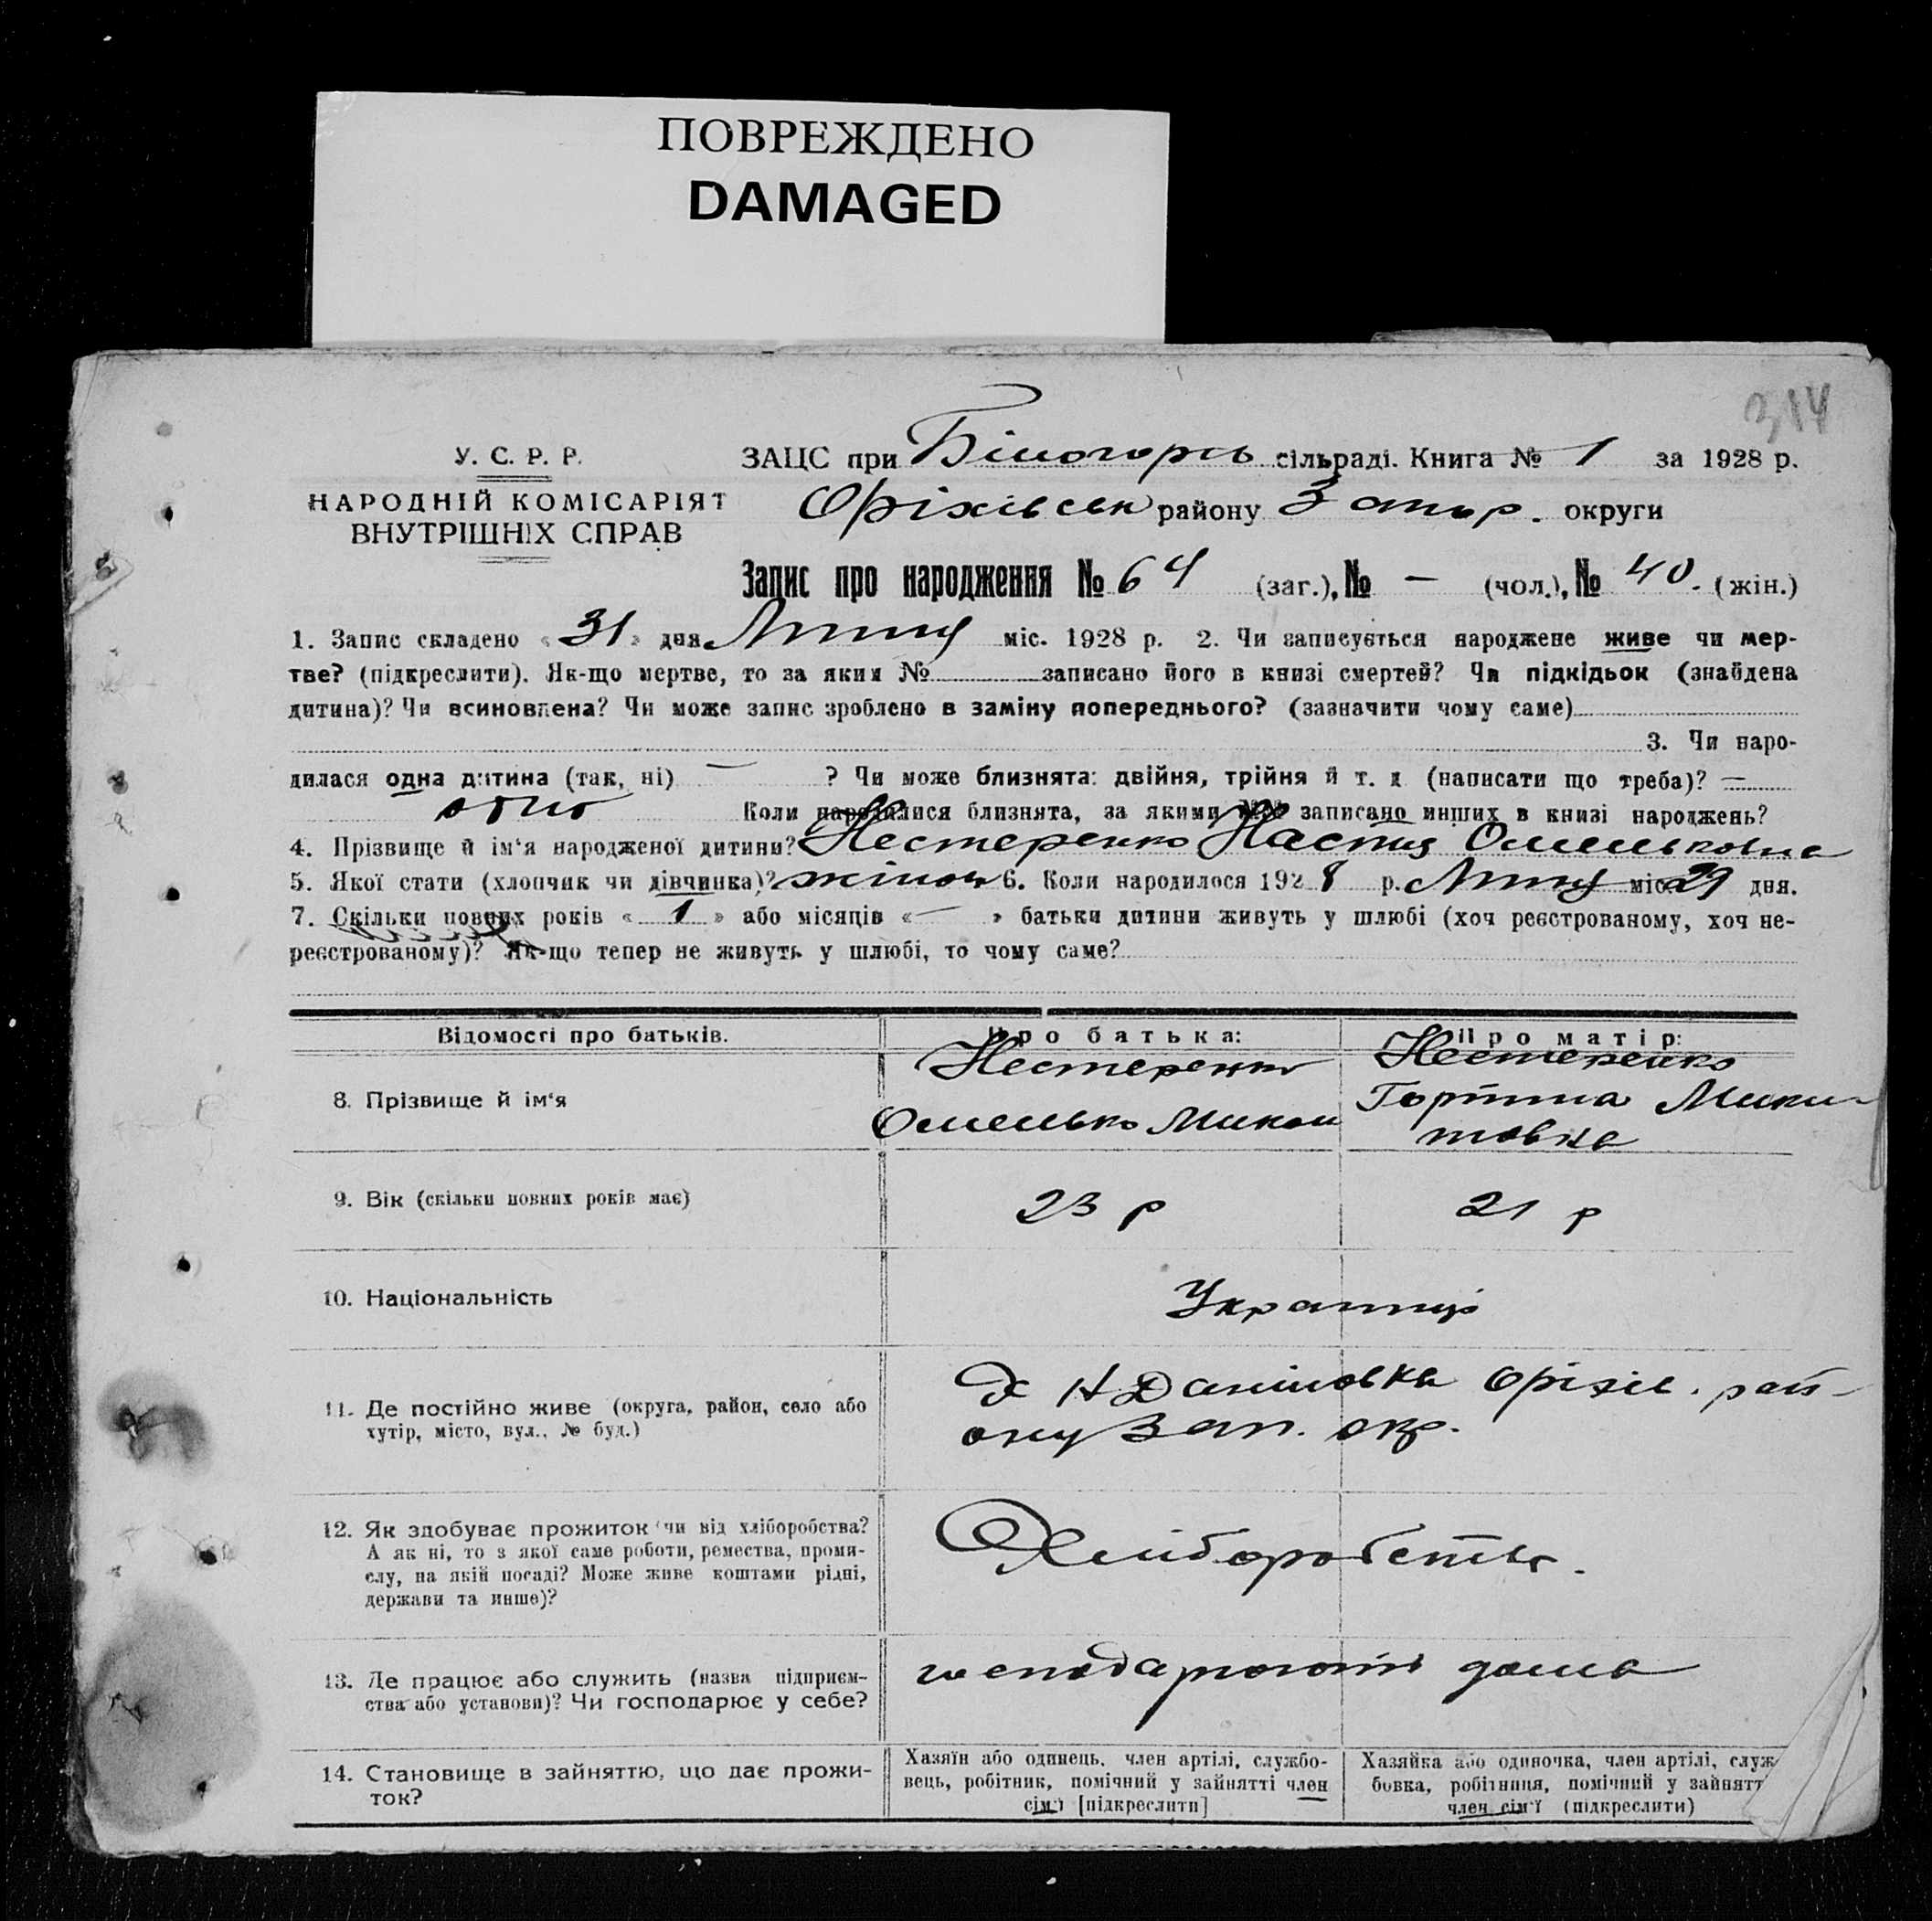 ПОВРЕЖДЕНО
DAMAGED
314
У. С. Р. Р.
НАРОДНІЙ КОМІСАРІЯТ
ВНУТРІШНІХ СПРАВ
ЗАЦС при Білогорсь сільраді. Книга № 1 за 1928 р.
Оріхівськ району Запор. округи
Запис про народження № 64 (заг.), № — (чол.), № 40. (жін.)
1. Запис складено « 31 » дня Липня міс. 1928 р. 2. Чи записується народжене живе чи мер-
тве? (підкреслити). Як-що мертве, то за яким № записано його в книзі смертей? Чи підкідьок (знайдена
дитина)? Чи всиновлена? Чи може запис зроблено в заміну попереднього? (зазначити чому саме)
3. Чи наро-
дилася одна дитина (так, ні) — ? Чи може близнята: двійня, трійня й т. д (написати що треба)? —
одно Коли народилися близнята, за якими №№ записано инших в книзі народжень?
4. Прізвище й ім'я народженої дитини? Нестеренко Настя Омельковна
5. Якої стати (хлопчик чи дівчинка)? жіноч 6. Коли народилося 1928 р. Липня міс 29 дня.
7. Скільки повних років « 1 » або місяців « — » батьки дитини живуть у шлюбі (хоч реєстрованому, хоч не-
реєстрованому)? Як-що тепер не живуть у шлюбі, то чому саме?
Відомості про батьків.
Про батька:
Про матір:
8. Прізвище й ім'я
Нестеренко
Омелько Микол
Нестеренко
Горпина Мики-
товна
9. Вік (скільки повних років має)
23 р
21 р
10. Національність
Українці
11. Де постійно живе (округа, район, село або
хутір, місто, вул., № буд.)
х Н Даніловка Оріхів. рай-
ону Зап. окр.
12. Як здобуває прожиток чи від хліборобства?
А як ні, то з якої саме роботи, ремества, проми-
слу, на якій посаді? Може живе коштами рідні,
держави та инше)?
Хліборобство.
13. Де працює або служить (назва підприєм-
ства або установи)? Чи господарює у себе?
господарюють дома
14. Становище в зайняттю, що дає прожи-
ток?
Хазяїн або одинець, член артілі, службо-
вець, робітник, помічний у зайнятті член
сім'ї [підкреслити]
Хазяйка або одиночка, член артілі, служ
бовка, робітниця, помічний у зайнятт
член сім'ї (підкреслити)